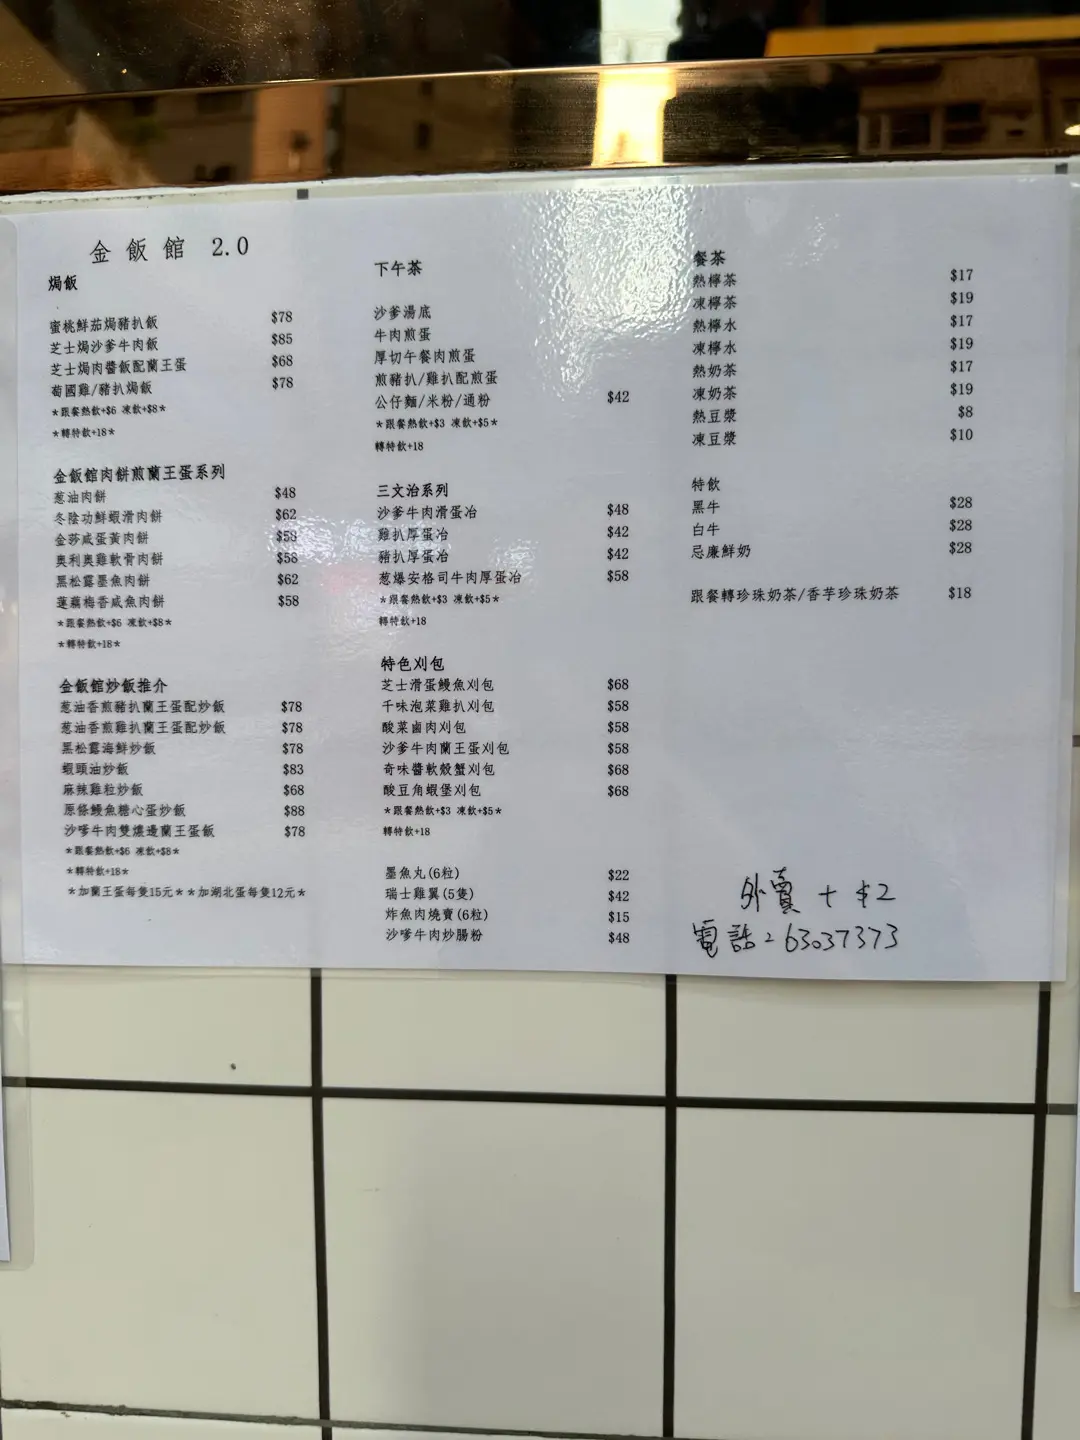 金飯館 2.0
焗飯
蜜桃鮮茄焗豬扒飯 $78
芝士焗沙爹牛肉飯 $85
芝士焗肉醬飯配蘭王蛋 $68
葡國雞/豬扒焗飯 $78
*跟餐熱飲+$6 凍飲+$8*
*轉特飲+18*
金飯館肉餅煎蘭王蛋系列
葱油肉餅 $48
冬陰功鮮蝦滑肉餅 $62
金莎咸蛋黃肉餅 $58
奧利奧雞軟骨肉餅 $58
黑松露墨魚肉餅 $62
蓮藕梅香咸魚肉餅 $58
*跟餐熱飲+$6 凍飲+$8*
*轉特飲+18*
金飯館炒飯推介
葱油香煎豬扒蘭王蛋配炒飯 $78
葱油香煎雞扒蘭王蛋配炒飯 $78
黑松露海鮮炒飯 $78
蝦頭油炒飯 $83
麻辣雞粒炒飯 $68
原條鰻魚糖心蛋炒飯 $88
沙嗲牛肉雙燶邊蘭王蛋飯 $78
*跟餐熱飲+$6 凍飲+$8*
*轉特飲+18*
*加蘭王蛋每隻15元**加湖北蛋每隻12元*
下午茶
沙爹湯底
牛肉煎蛋
厚切午餐肉煎蛋
煎豬扒/雞扒配煎蛋
公仔麵/米粉/通粉 $42
*跟餐熱飲+$3 凍飲+$5*
轉特飲+18
三文治系列
沙爹牛肉滑蛋治 $48
雞扒厚蛋治 $42
豬扒厚蛋治 $42
葱爆安格司牛肉厚蛋治 $58
*跟餐熱飲+$3 凍飲+$5*
轉特飲+18
特色刈包
芝士滑蛋鰻魚刈包 $68
千味泡菜雞扒刈包 $58
酸菜鹵肉刈包 $58
沙爹牛肉蘭王蛋刈包 $58
奇味醬軟殼蟹刈包 $68
酸豆角蝦堡刈包 $68
*跟餐熱飲+$3 凍飲+$5*
轉特飲+18
墨魚丸(6粒) $22
瑞士雞翼(5隻) $42
炸魚肉燒賣(6粒) $15
沙嗲牛肉炒腸粉 $48
餐茶
熱檸茶 $17
凍檸茶 $19
熱檸水 $17
凍檸水 $19
熱奶茶 $17
凍奶茶 $19
熱豆漿 $8
凍豆漿 $10
特飲
黑牛 $28
白牛 $28
忌廉鮮奶 $28
跟餐轉珍珠奶茶/香芋珍珠奶茶 $18
外賣 + $2
電話：63037373